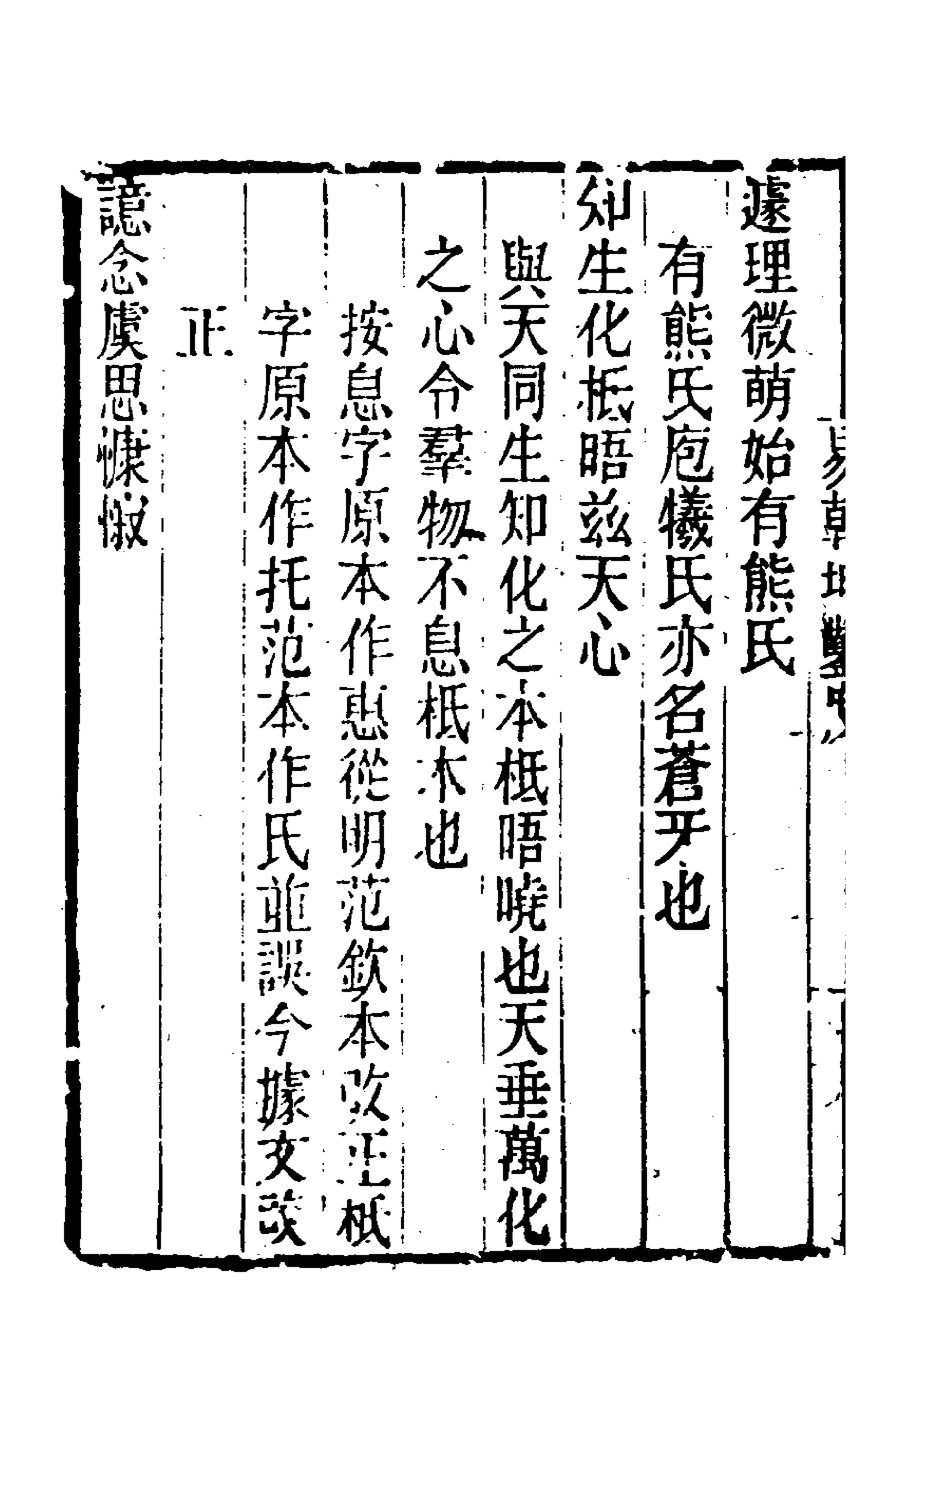 易乾坤鑿
遽理微萌始有熊氏
有熊氏庖犧氏亦名蒼牙也
知生化柢晤兹天心
與天同生知化之本柢晤曉也天垂萬化
之心令羣物不息柢本也
按息字原本作惠從明范欽本改正柢
字原本作托范本作氏並誤今據文改
正
譩念虞思慷慨